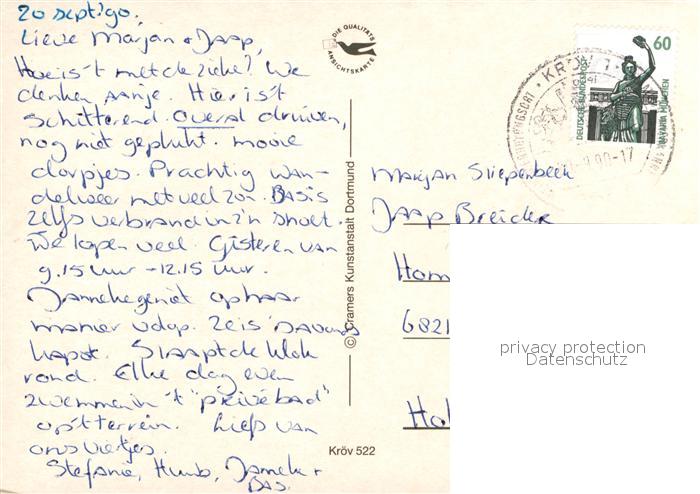 20 sept '90.
Lieve Marjan + Jaap,
Hoe is 't met de zieke? We
denken aan je. Hier is 't
schitterend. Overal druiven,
nog niet geplukt. mooie
dorpjes. Prachtig wan-
delweer met veel zon. BAS is
zelfs verbrand in z'n snoet.
We lopen veel. Gisteren van
9.15 uur - 12.15 uur.
Janneke geniet op haar
manier v.d op. Ze is 's avonds
kapot. Slaapt de klok
rond. Elke dag even
zwemmen in 't "privébad"
op 't terrein. Liefs van
ons viertjes.
Stefanie, Huub, Janneke +
BAS.
DIE QUALITÄTS
ANSICHTSKARTE
© Cramers Kunstanstalt Dortmund
Kröv 522
60
DEUTSCHE BUNDESPOST
BAVARIA MÜNCHEN
KRÖV 1
90-17
Marjan Sliepenbeek
Jaap Breider
Hom
6821
Hol
privacy protection
Datenschutz